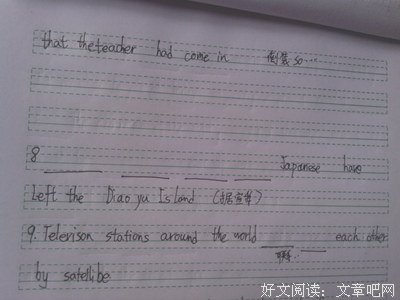 that the teacher had come in 倒装 so……
8 ____ ____ ____ ____ Japanese have
Left the Diaoyu Island (据宣布)
9. Televison stations around the world ____ ____ each other
联系..
by satellibe
好文阅读：文章吧网